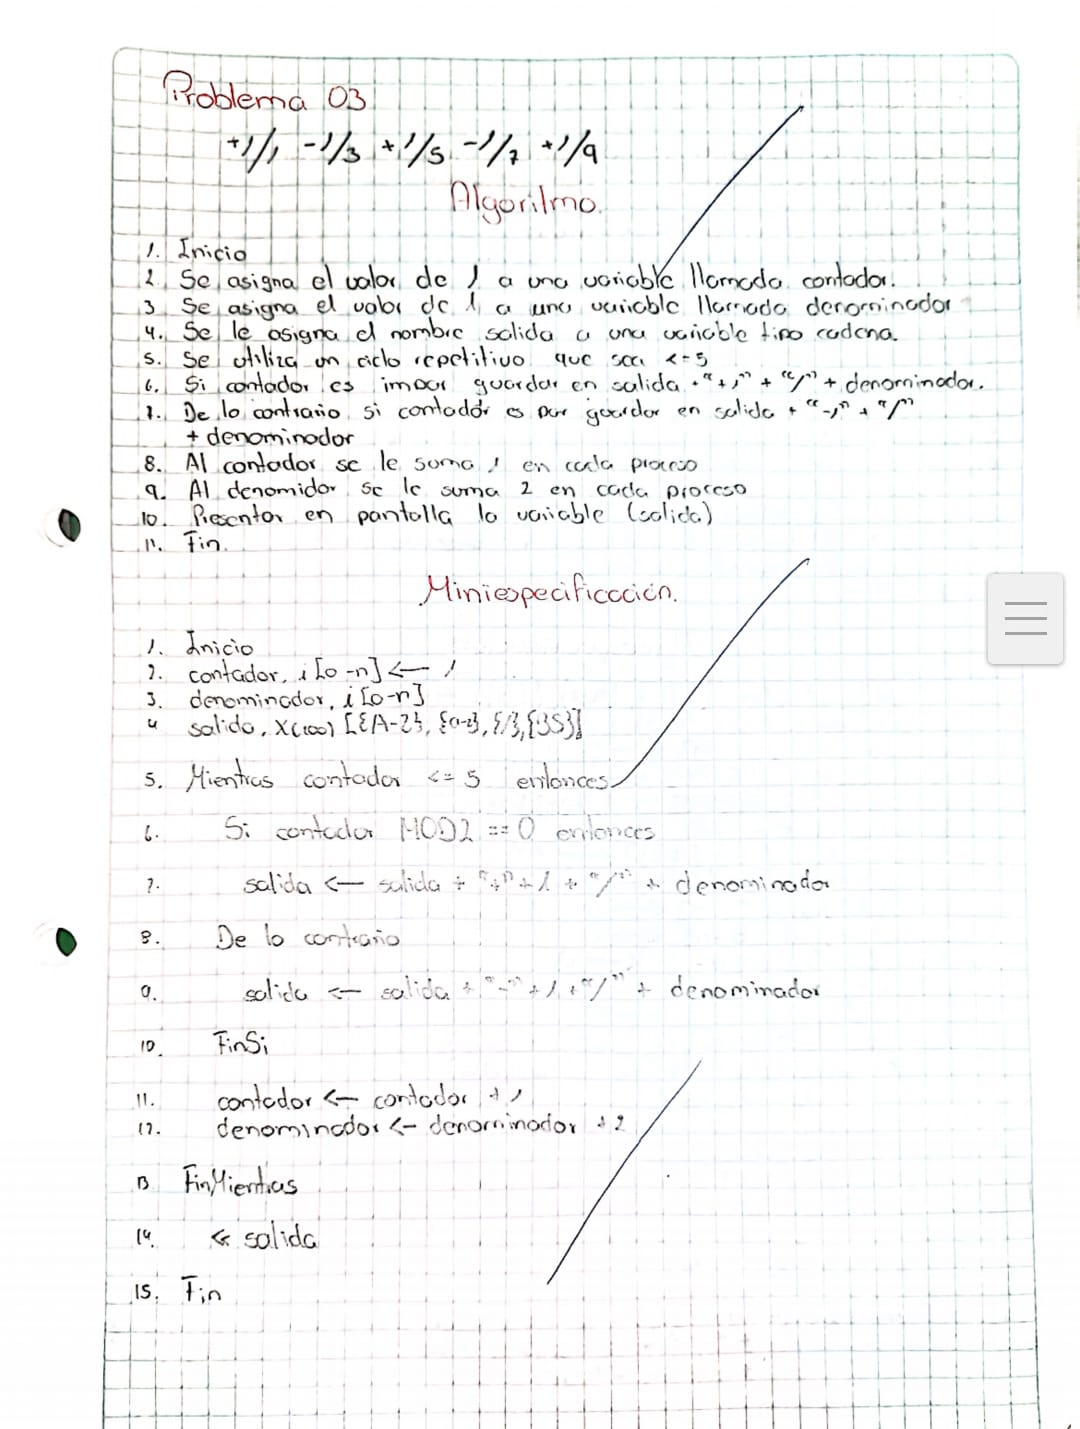 Problema 03
+1/1 -1/3 +1/5 -1/7 +1/9
Algoritmo.
1. Inicio
2. Se asigna el valor de 1 a una variable llamada contador.
3. Se asigna el valor de 1 a una variable llamada denominador
4. Se le asigna el nombre salida a una variable tipo cadena.
5. Se utiliza un ciclo repetitivo que sea <=5
6. Si contador es impar guardar en salida + "+1" + "/" + denominador.
7. De lo contrario si contador es par guardar en salida + "-1" + "/"
+ denominador
8. Al contador se le suma 1 en cada proceso
9. Al denomidor se le suma 2 en cada proceso
10. Presentar en pantalla la variable (salida)
11. Fin.
Miniespecificación.
1. Inicio
2. contador, i [0-n] <— 1
3. denominador, i [0-n]
4 salida, X(100) [{A-Z}, {a-z}, {/}, {35}]
5. Mientras contador <= 5 entonces
6. Si contador MOD2 == 0 entonces
7. salida <— salida + "+" + 1 + "/" + denominador
8. De lo contrario
9. salida <— salida + "-" + 1 + "/" + denominador
10. FinSi
11. contador <— contador + 1
12. denominador <— denominador + 2
13 FinMientras
14. << salida
15. Fin